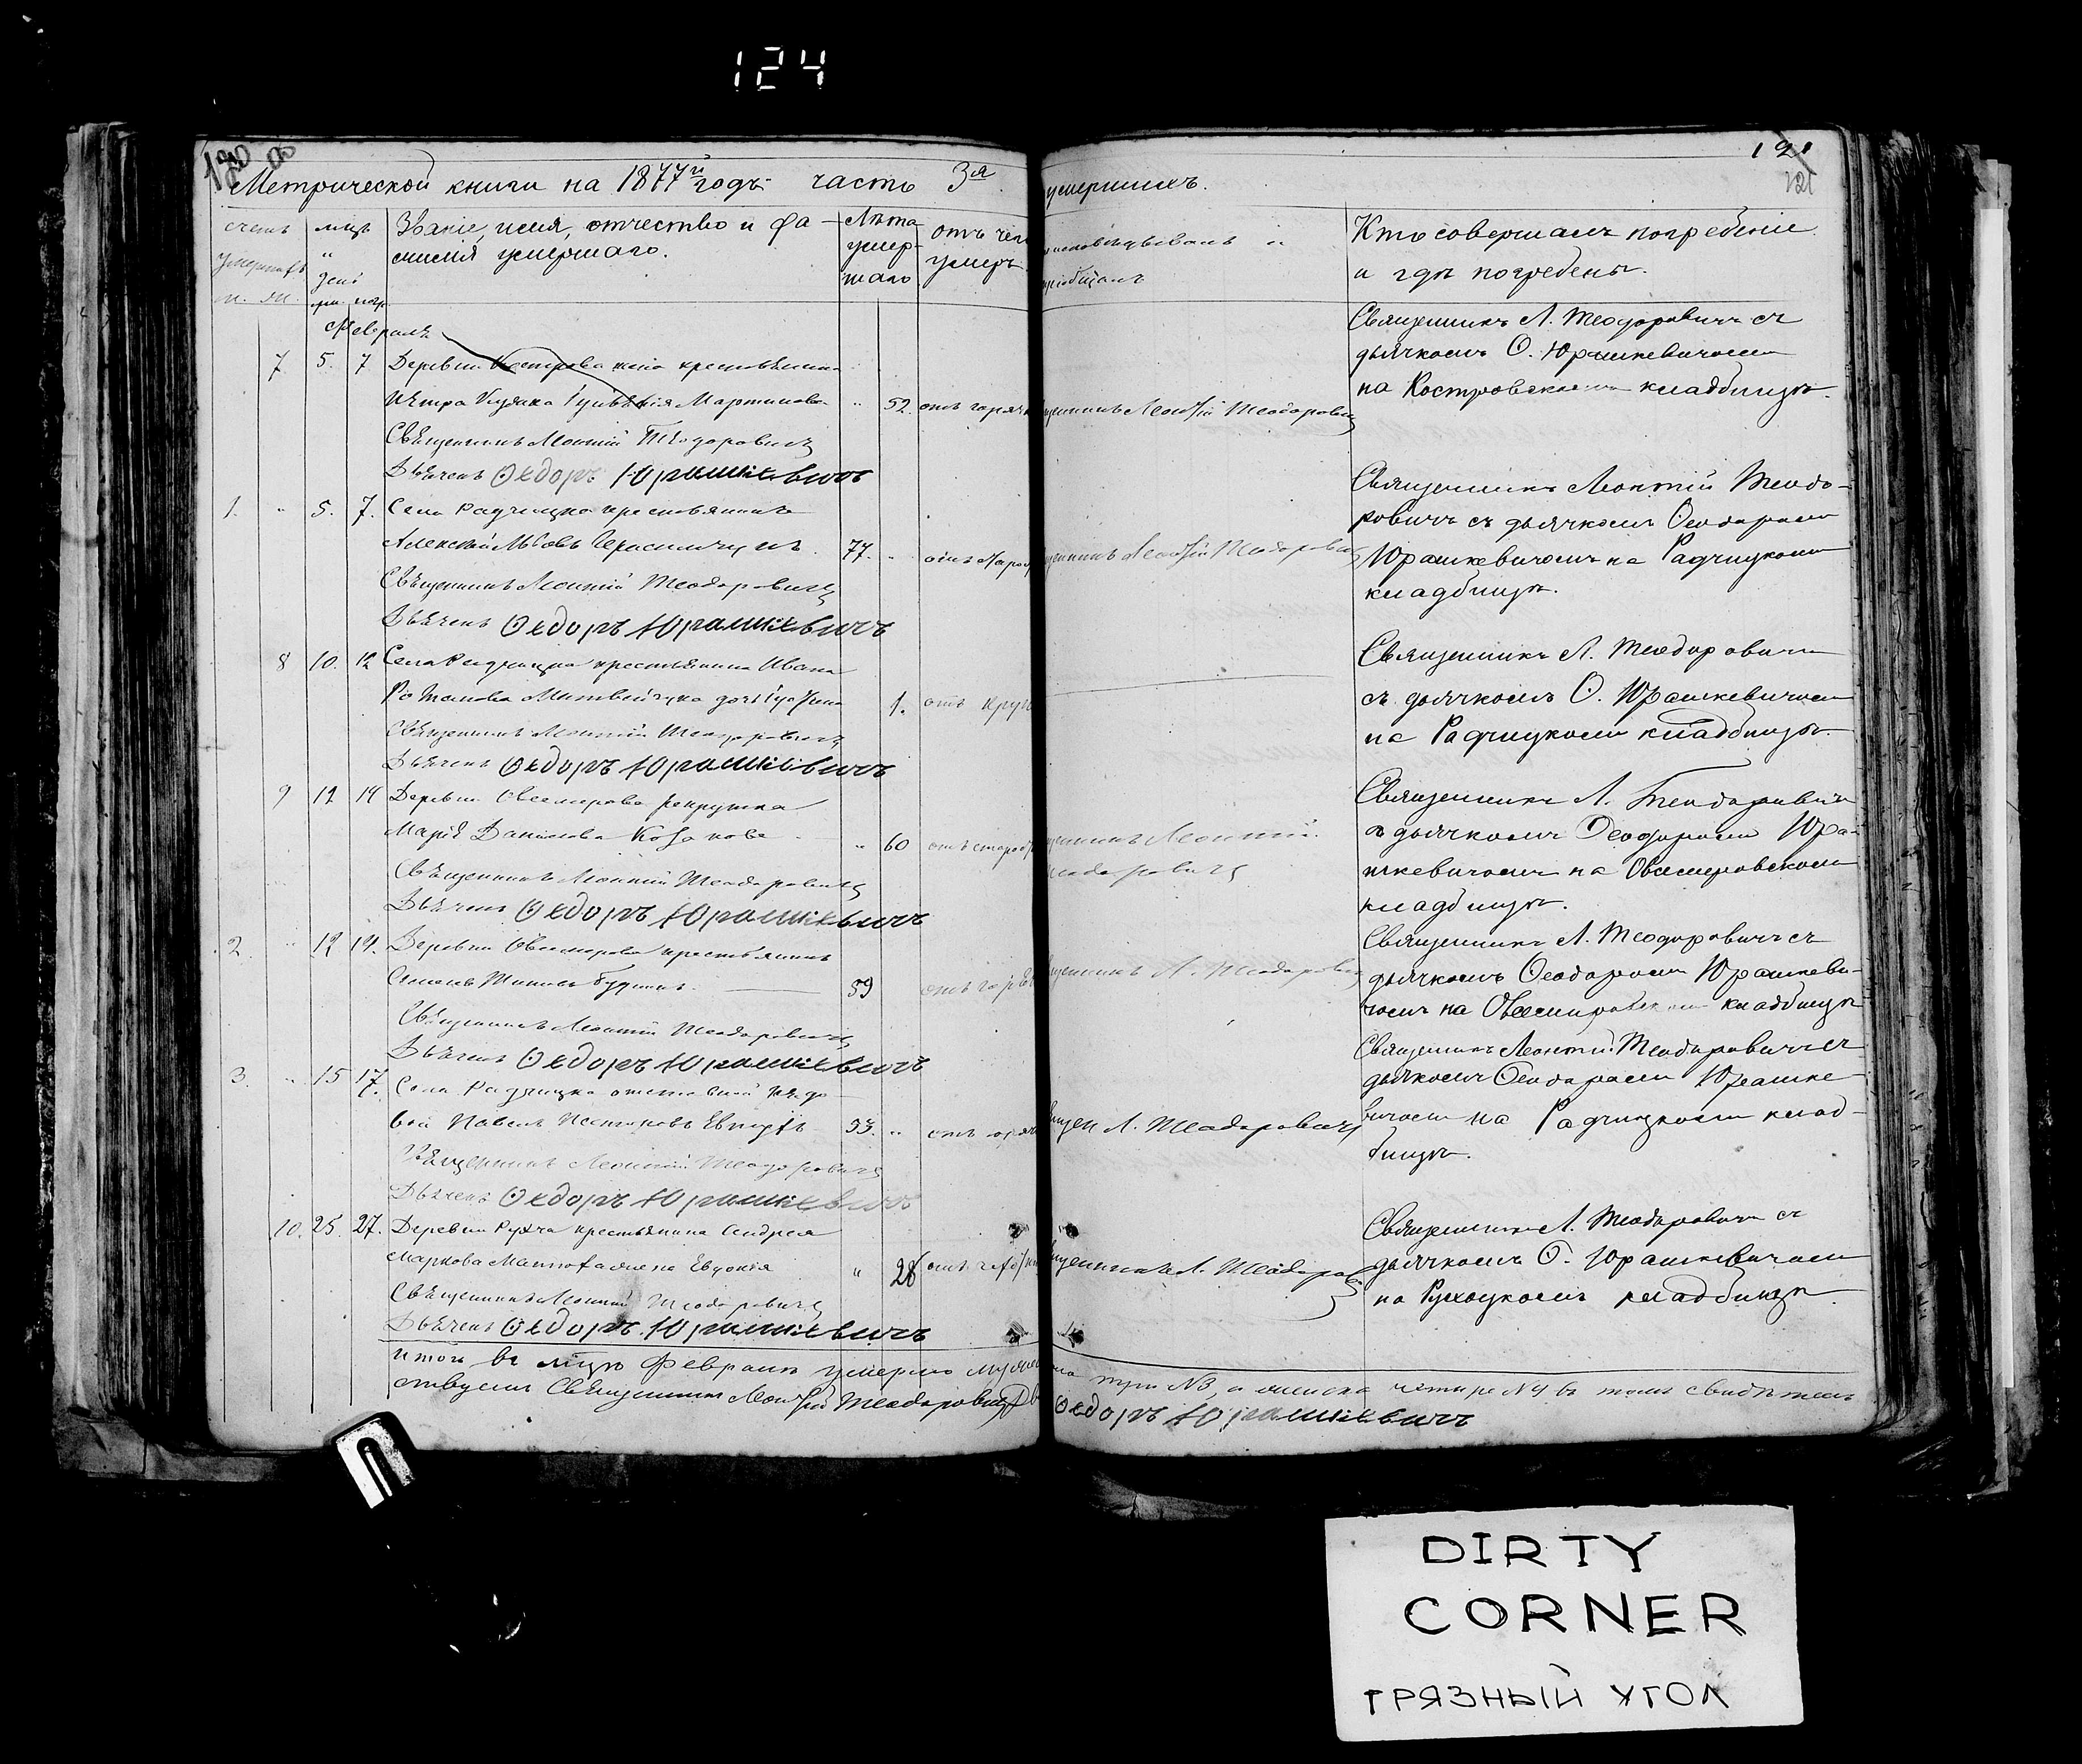 124
120 об
121
121
Метрической книги на 1877й годъ часть 3я умершихъ.
счетъ умершихъ
м. ж.
мцъ и день
ум. погр.
Званіе, имя, отчество и фа-
милія умершаго.
Лѣта
умер-
шаго
отъ чего
умеръ
исповѣдывалъ и
пріобщалъ
Кто совершалъ погребеніе
и гдѣ погребены.
Февраль
7 5. 7 Деревни Кострова жена крестьянина
Петра Мартинова " 52. отъ горяч
Священникъ Леонтій Теодоровичъ
Дьячекъ Ѳедоръ Юрашкевичъ
Священникъ Леонтій Теодоровичъ
Священникъ Л. Теодоровичъ съ
дьячкомъ Ѳ. Юрашкевичемъ
на Костровскомъ кладбищѣ.
1. " 5. 7. Села Радчицка крестьянинъ
Алексѣй Герасимчукъ. 77. " отъ
Священникъ Леонтій Теодоровичъ
Дьячекъ Ѳедоръ Юрашкевичъ
Священникъ Леонтій Теодоровичъ
Священникъ Леонтій Теодо-
ровичъ съ дьячкомъ Ѳеодоромъ
Юрашкевичемъ на Радчицкомъ
кладбищѣ.
8 10. 12 Села Радчицка крестьянина Ивана
Романова Матвейчука дочь 1. отъ круп
Священникъ Леонтій Теодоровичъ
Дьячекъ Ѳедоръ Юрашкевичъ
Священникъ Л. Теодоровичъ
съ дьячкомъ Ѳ. Юрашкевичемъ
на Радчицкомъ кладбищѣ.
9 12 14 Деревни Овсемирова рекрутка
Марія Данилова " 60 отъ старос
Священникъ Леонтій Теодоровичъ
Дьячекъ Ѳедоръ Юрашкевичъ
Священникъ Леонтій
Теодоровичъ
Священникъ Л. Теодоровичъ
съ дьячкомъ Ѳеодоромъ Юра-
шкевичемъ на Овсемировскомъ
кладбищѣ.
2. " 12 14. Деревни Овсемирова крестьянинъ
Семенъ 59 отъ
Священникъ Леонтій Теодоровичъ
Дьячекъ Ѳедоръ Юрашкевичъ
Священникъ Л. Теодоровичъ
Священникъ Л. Теодоровичъ съ
дьячкомъ Ѳеодоромъ Юрашкеви-
чемъ на Овсемировскомъ кладбищѣ
3. " 15 17. Села Радчицка отставной рядо
вой Павелъ 33. " отъ
Священникъ Леонтій Теодоровичъ
Дьячекъ Ѳедоръ Юрашкевичъ
Священ Л. Теодоровичъ
Священникъ Леонтій Теодоровичъ съ
дьячкомъ Ѳеодоромъ Юрашке-
вичемъ на Радчицкомъ клад-
бищѣ.
10. 25. 27. Деревни Рухча крестьянина Андрея
Маркова жена Евдокія " 28 отъ
Священникъ Леонтій Теодоровичъ
Дьячекъ Ѳедоръ Юрашкевичъ
Священникъ Л. Теодоровичъ
Священникъ Л. Теодоровичъ съ
дьячкомъ Ѳ. Юрашкевичемъ
на Рухоцкомъ кладбищѣ.
Итого въ мцѣ Февралѣ умерло мужеска три №3, а женска четыре №4 въ томъ свидѣтель
ствуемъ Священникъ Леонтій Теодоровичъ Дь Ѳедоръ Юрашкевичъ
DIRTY
CORNER
ГРЯЗНЫЙ УГОЛ